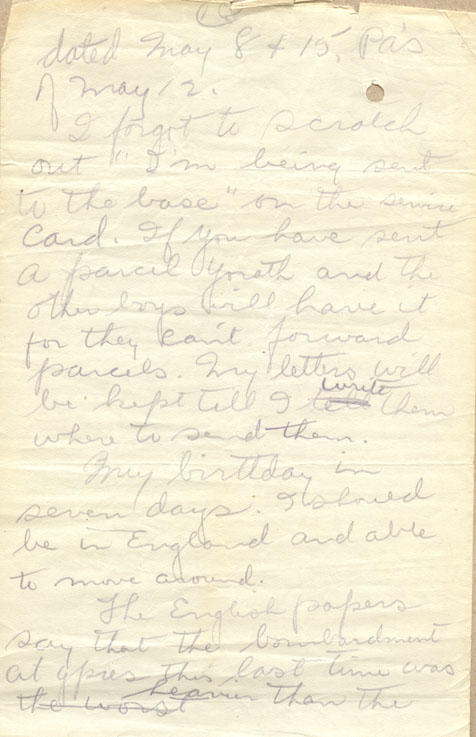 dated May 8 & 15, Pa's
of May 12.
I forgot to scratch
out "I'm being sent
to the base" on the service
card. If you have sent
a parcel Yorath and the
other boys will have it
for they can't forward
parcels. My letters will
be kept till I write them
where to send them.
My birthday in
seven days. I should
be in England and able
to move around.
The English papers
say that the bombardment
at ypres this last time was
the worst heavier than the